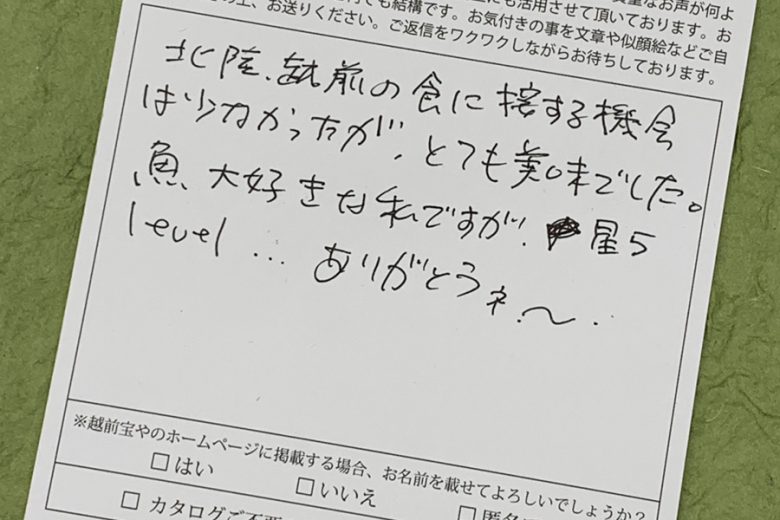 にも活用させて頂いております。お
でも結構です。お気付きの事を文章や似顔絵などご自
の上、お送りください。ご返信をワクワクしながらお待ちしております。
北陸、越前の食に接する機会
は少なかったが、とても美味でした。
魚、大好きな私ですが、星5
level … ありがとうネ.〜.
※越前宝やのホームページに掲載する場合、お名前を載せてよろしいでしょうか?
□ はい □ いいえ □ 匿名
□ カタログご不要